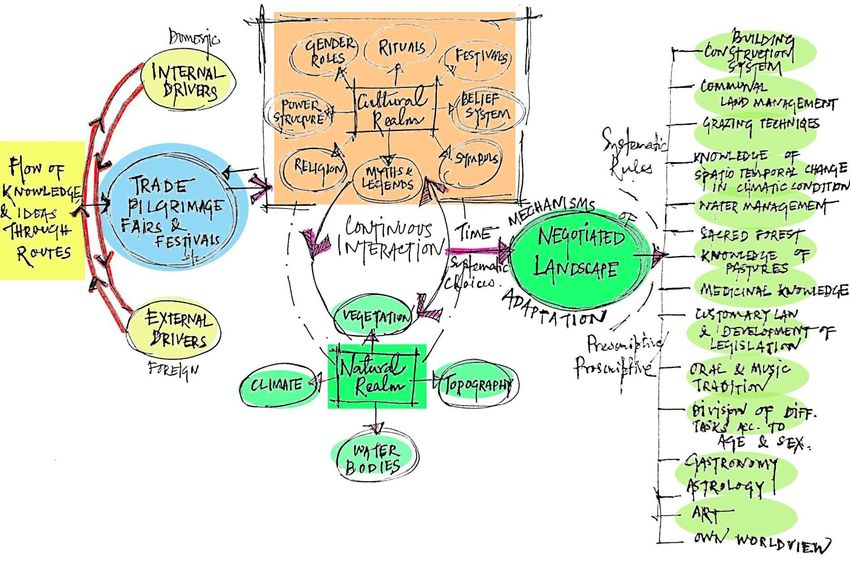 Domestic
INTERNAL
DRIVERS
FLOW OF
KNOWLEDGE
& IDEAS
THROUGH
ROUTES
TRADE
PILGRIMAGE
FAIRS &
FESTIVALS
EXTERNAL
DRIVERS
FOREIGN
GENDER
ROLES
RITUALS
FESTIVALS
POWER
STRUCTURE
Cultural
Realm
BELIEF
SYSTEM
RELIGION
MYTHS &
LEGENDS
SYMBOLS
CONTINUOUS
INTERACTION
TIME
Systematic
Choices.
VEGETATION
CLIMATE
Natural
Realm
TOPOGRAPHY
WATER
BODIES
MECHANISMS OF
NEGOTIATED
LANDSCAPE
ADAPTATION
Systematic
Rules
Prescriptive
Proscriptive
BUILDING
CONSTRUCTION
SYSTEM
COMMUNAL
LAND MANAGEMENT
GRAZING TECHNIQES
KNOWLEDGE OF
SPATIO TEMPORAL CHANGE
IN CLIMATIC CONDITION
WATER MANAGEMENT
SACRED FOREST
KNOWLEDGE OF
PASTURES
MEDICINAL KNOWLEDGE
CUSTOMARY LAW
& DEVELOPMENT OF
LEGISLATION
ORAL & MUSIC
TRADITION
DIVISION OF DIFF.
TASKS ACC. TO
AGE & SEX.
GASTRONOMY
ASTROLOGY
ART
OWN WORLDVIEW